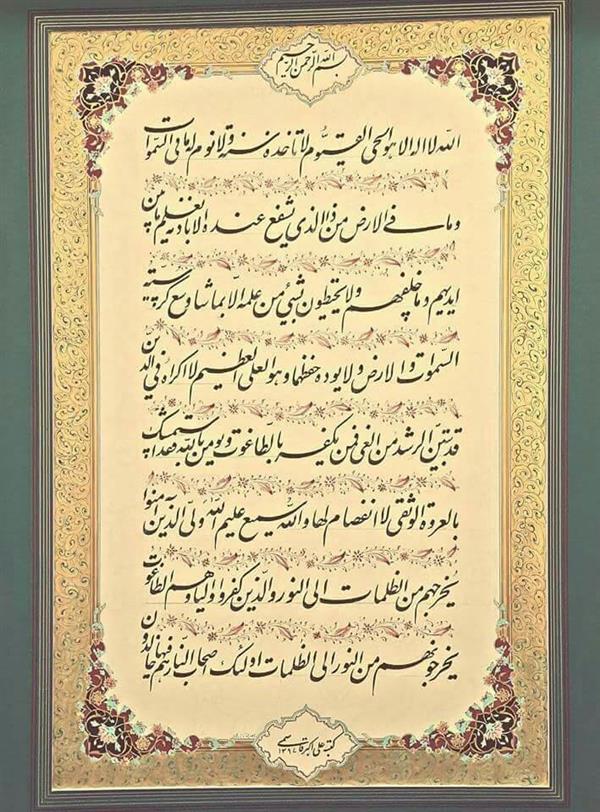 بسم الله الرحمن الرحیم
الله لا اله الا هو الحی القیوم لا تاخذه سنة ولا نوم له ما فی السموات
وما فی الارض من ذا الذی یشفع عنده الا باذنه یعلم ما بین
ایدیهم وما خلفهم ولا یحیطون بشیئ من علمه الا بما شا وسع کرسیه
السموات والارض ولا یوده حفظهما وهو العلی العظیم لا اکراه فی الدین
قد تبین الرشد من الغی فمن یکفر بالطاغوت ویومن بالله فقد استمسک
بالعروة الوثقی لا انفصام لها والله سمیع علیم الله ولی الذین آمنوا
یخرجهم من الظلمات الی النور والذین کفروا اولیاوهم الطاغوت
یخرجونهم من النور الی الظلمات اولئک اصحاب النار هم فیها خالدون
کتبه علی اکبر قاسمی